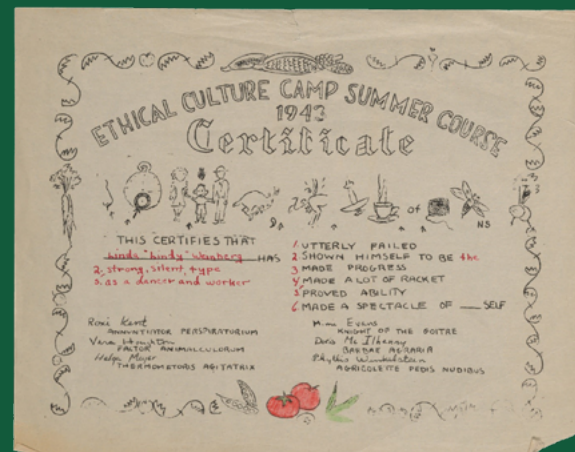 ETHICAL CULTURE CAMP SUMMER COURSE
1943
Certificate
of
NS
THIS CERTIFIES THAT
Linda "Lindy" Weinberg HAS
2. strong, silent, type
3. as a dancer and worker
1. UTTERLY FAILED
2 SHOWN HIMSELF TO BE the
3 MADE PROGRESS
4 MADE A LOT OF RACKET
5 PROVED ABILITY
6 MADE A SPECTACLE OF ___ SELF
Kent
PERSPIRATORIUM
Vera Houghton
FACTOR ANIMALCULORUM
Helga Mayer
THERMOMETORIS AGITATRIX
Evans
KNIGHT OF THE GOITRE
Doris Mc Ilhenny
BARBAE AGRARIA
Phyllis
AGRICOLETTE PEDIS NUDIBUS